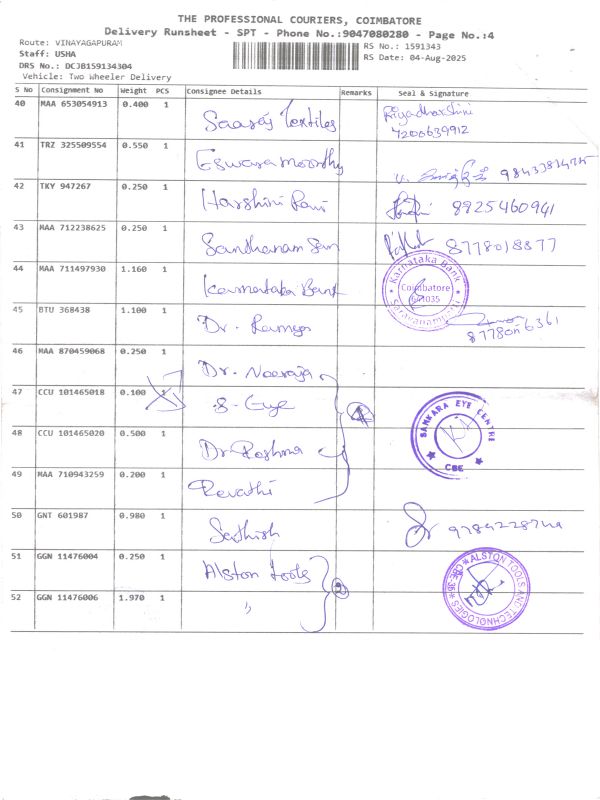 THE PROFESSIONAL COURIERS, COIMBATORE
Delivery Runsheet - SPT - Phone No.:9047080280 - Page No.:4
Route: VINAYAGAPURAM
Staff: USHA
DRS No.: DCJB159134304
Vehicle: Two Wheeler Delivery
RS No.: 1591343
RS Date: 04-Aug-2025
S No Consignment No Weight PCS Consignee Details Remarks Seal & Signature
40 MAA 653054913 0.400 1 Saaras Textiles Priyadharshini
7200639912
41 TRZ 325509554 0.550 1 Eswara moorthy
42 TKY 947267 0.250 1 Harshini Rani 8925460941
43 MAA 712238625 0.250 1 Santhanam 8778018877
44 MAA 711497930 1.160 1 Karnataka Bank
Karnataka Bank
Coimbatore
641035
Saravanampatti
45 BTU 368438 1.100 1 Dr. Ramya
46 MAA 870459068 0.250 1 Dr. Neeraja
47 CCU 101465018 0.100 1 S. Eye 4
SANKARA EYE CENTRE
CBE
48 CCU 101465020 0.500 1 Dr Reshma
49 MAA 710943259 0.200 1 Revathi
50 GNT 601987 0.980 1 Sathish
51 GGN 11476004 0.250 1 Alston tools 2
ALSTON TOOLS AND TECHNOLOGIES
CBE-35
52 GGN 11476006 1.970 1 "